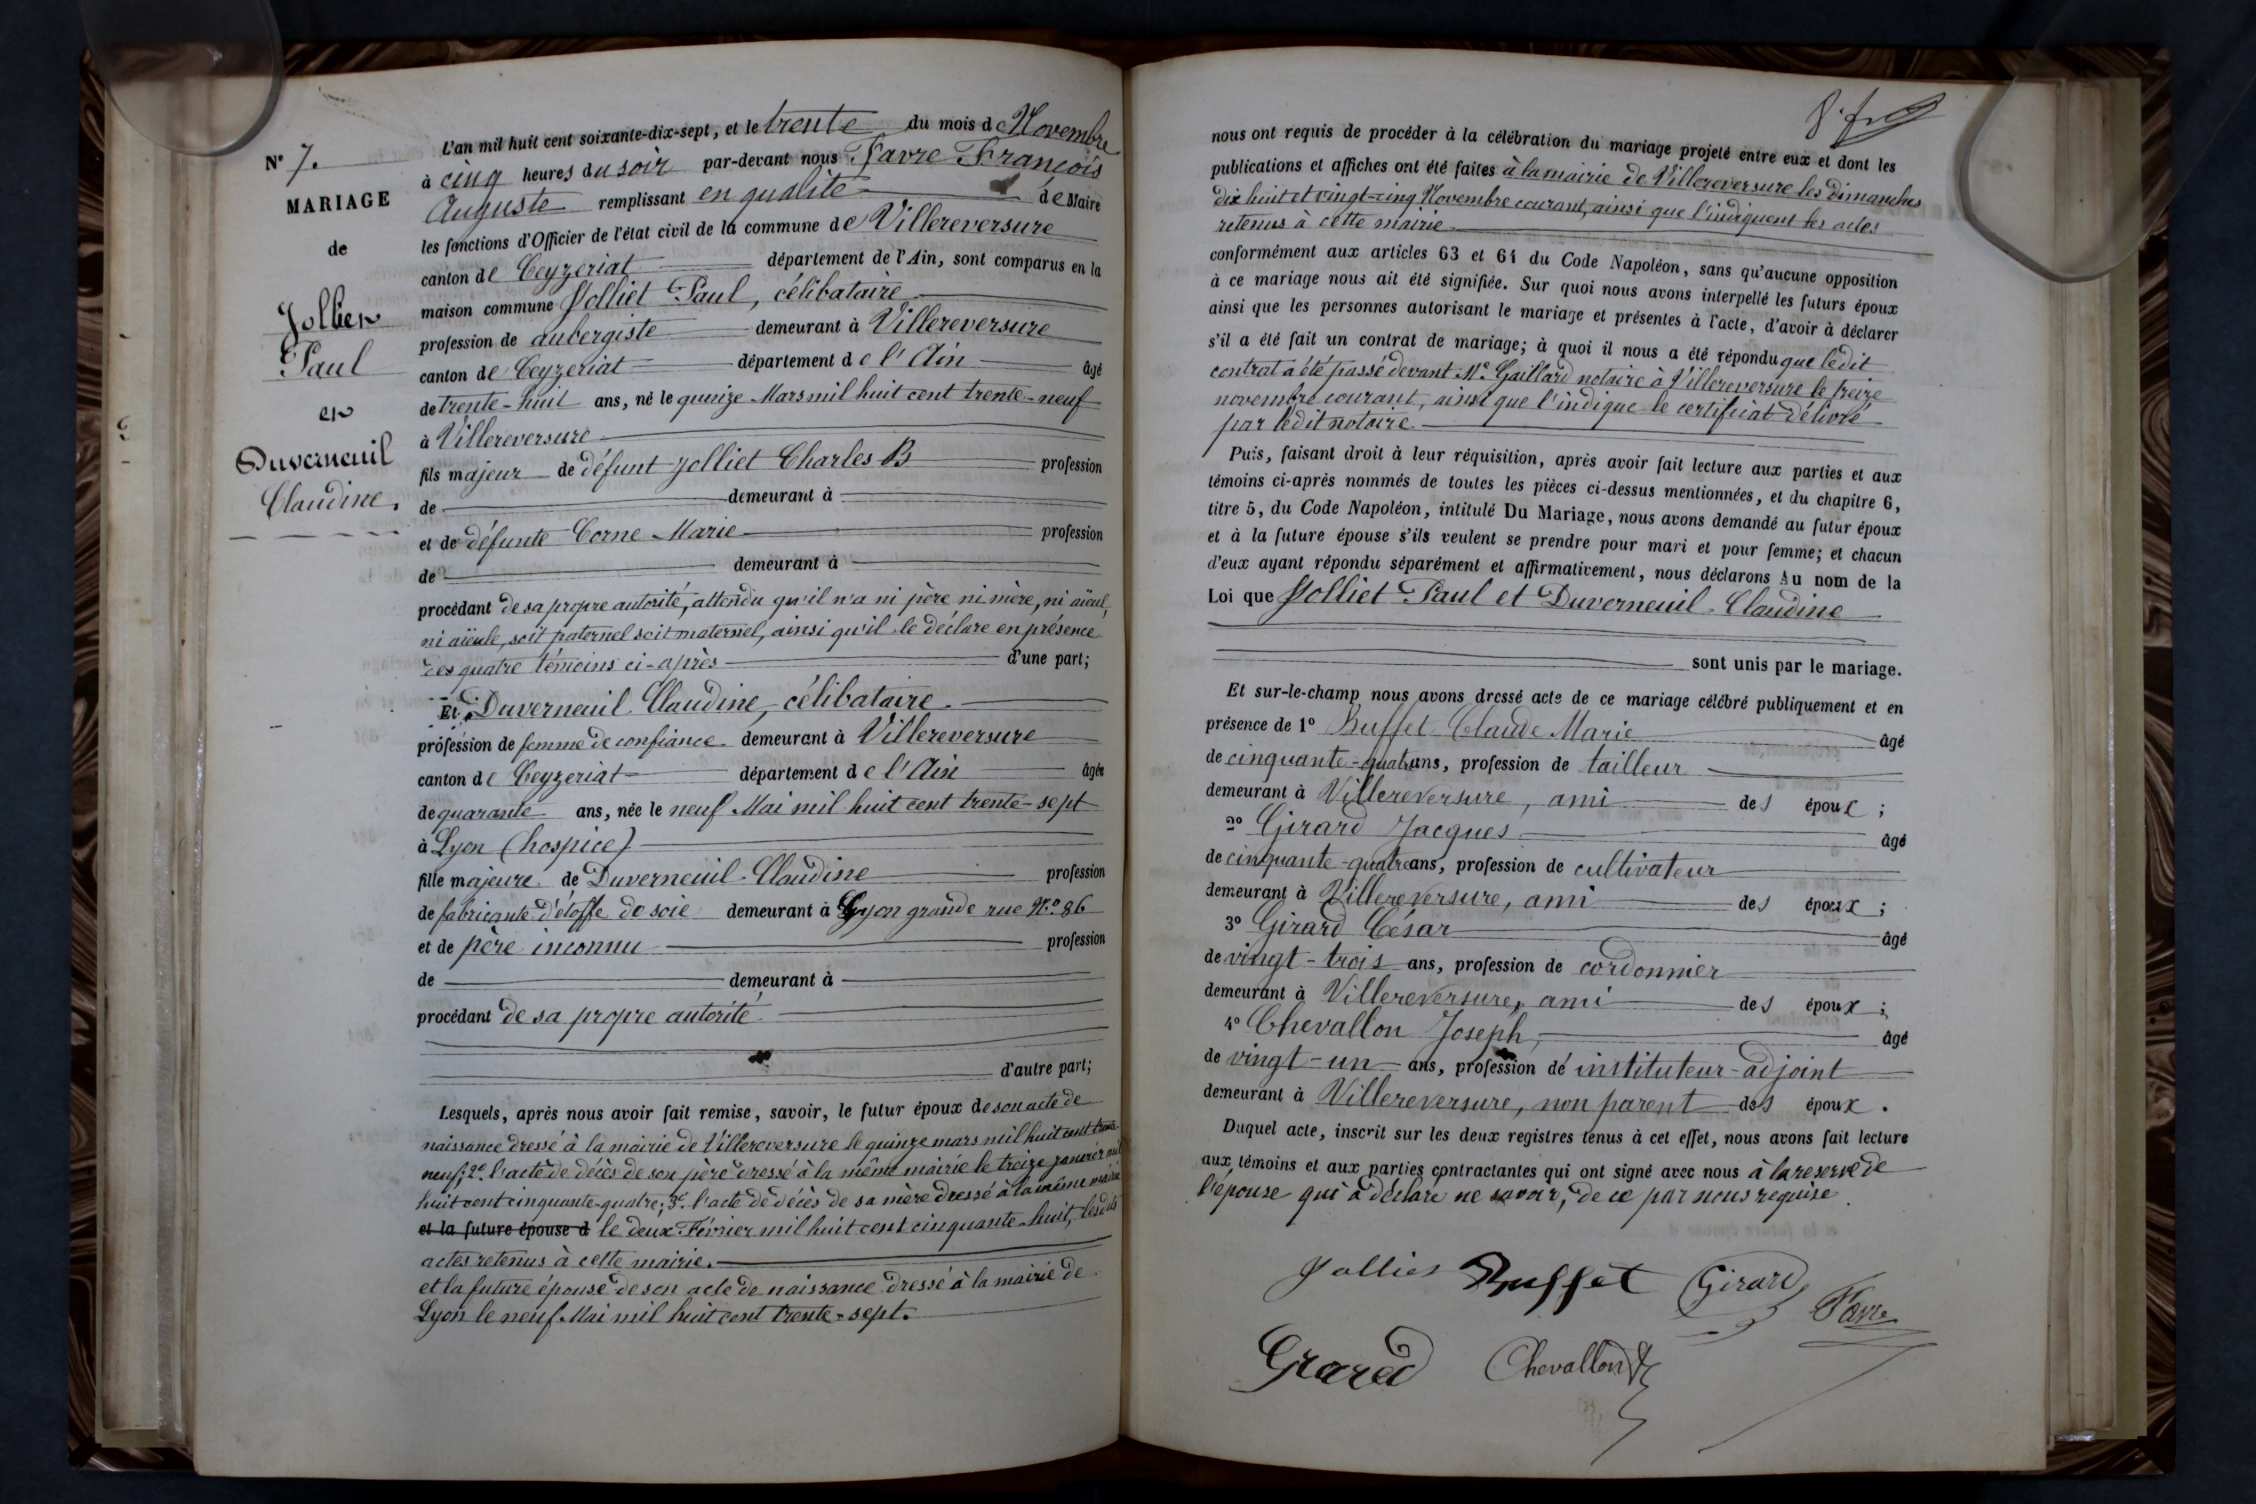 N° 7.
MARIAGE
de
Jollier
Paul
et
Duverneuil
Claudine.
L'an mil huit cent soixante-dix-sept, et le trente du mois de Novembre
à cinq heures du soir par-devant nous Favre François
Auguste remplissant en qualité de Maire
les fonctions d'Officier de l'état civil de la commune de Villereversure
canton de Ceyzeriat département de l'Ain, sont comparus en la
maison commune Jolliet Paul, célibataire
profession de aubergiste demeurant à Villereversure
canton de Ceyzeriat département de l'Ain âgé
de trente-huit ans, né le quinze Mars mil huit cent trente-neuf
à Villereversure
fils majeur de défunt Jolliet Charles B profession
de demeurant à
et de défunte Corne Marie profession
de demeurant à
procédant de sa propre autorité, attendu qu'il n'a ni père ni mère, ni aïeul,
ni aïeule, soit paternel soit maternel, ainsi qu'il le déclare en présence
des quatre témoins ci-après d'une part;
Et Duverneuil Claudine, célibataire
profession de femme de confiance demeurant à Villereversure
canton de Ceyzeriat département de l'Ain âgée
de quarante ans, née le neuf Mai mil huit cent trente-sept
à Lyon (hospice)
fille majeure de Duverneuil Claudine profession
de fabricante d'étoffe de soie demeurant à Lyon grande rue N° 86
et de père inconnu profession
de demeurant à
procédant de sa propre autorité
d'autre part;
Lesquels, après nous avoir fait remise, savoir, le futur époux de son acte de
naissance dressé à la mairie de Villereversure le quinze mars mil huit cent trente-
neuf; 2° l'acte de décès de son père dressé à la même mairie le treize janvier mil
huit cent cinquante-quatre; 3° l'acte de décès de sa mère dressé à la même mairie
et la future épouse d le deux Février mil huit cent cinquante-huit, lesdits
actes retenus à cette mairie.
et la future épouse de son acte de naissance dressé à la mairie de
Lyon le neuf Mai mil huit cent trente-sept.
nous ont requis de procéder à la célébration du mariage projeté entre eux et dont les
publications et affiches ont été faites à la mairie de Villereversure les Dimanches
dix huit et vingt-cinq Novembre courant, ainsi que l'indiquent les actes
retenus à cette mairie
conformément aux articles 63 et 64 du Code Napoléon, sans qu'aucune opposition
à ce mariage nous ait été signifiée. Sur quoi nous avons interpellé les futurs époux
ainsi que les personnes autorisant le mariage et présentes à l'acte, d'avoir à déclarer
s'il a été fait un contrat de mariage; à quoi il nous a été répondu que ledit
contrat a été passé devant Me Gaillard notaire à Villereversure le treize
novembre courant, ainsi que l'indique le certificat délivré
par ledit notaire.
Puis, faisant droit à leur réquisition, après avoir fait lecture aux parties et aux
témoins ci-après nommés de toutes les pièces ci-dessus mentionnées, et du chapitre 6,
titre 5, du Code Napoléon, intitulé Du Mariage, nous avons demandé au futur époux
et à la future épouse s'ils veulent se prendre pour mari et pour femme; et chacun
d'eux ayant répondu séparément et affirmativement, nous déclarons Au nom de la
Loi que Jolliet Paul et Duverneuil Claudine
sont unis par le mariage.
Et sur-le-champ nous avons dressé acte de ce mariage célébré publiquement et en
présence de 1° Buffet Claude Marie âgé
de cinquante-quatre ans, profession de tailleur
demeurant à Villereversure, ami des époux;
2° Girard Jacques âgé
de cinquante-quatre ans, profession de cultivateur
demeurant à Villereversure, ami des époux;
3° Girard César âgé
de vingt-trois ans, profession de cordonnier
demeurant à Villereversure, ami des époux;
4° Chevallon Joseph, âgé
de vingt-un ans, profession de instituteur-adjoint
demeurant à Villereversure, non parent des époux.
Duquel acte, inscrit sur les deux registres tenus à cet effet, nous avons fait lecture
aux témoins et aux parties contractantes qui ont signé avec nous à la reserve de
l'épouse qui a déclaré ne savoir, de ce par nous requise.
Jollier Buffet Girard Favre
Girard Chevallon J